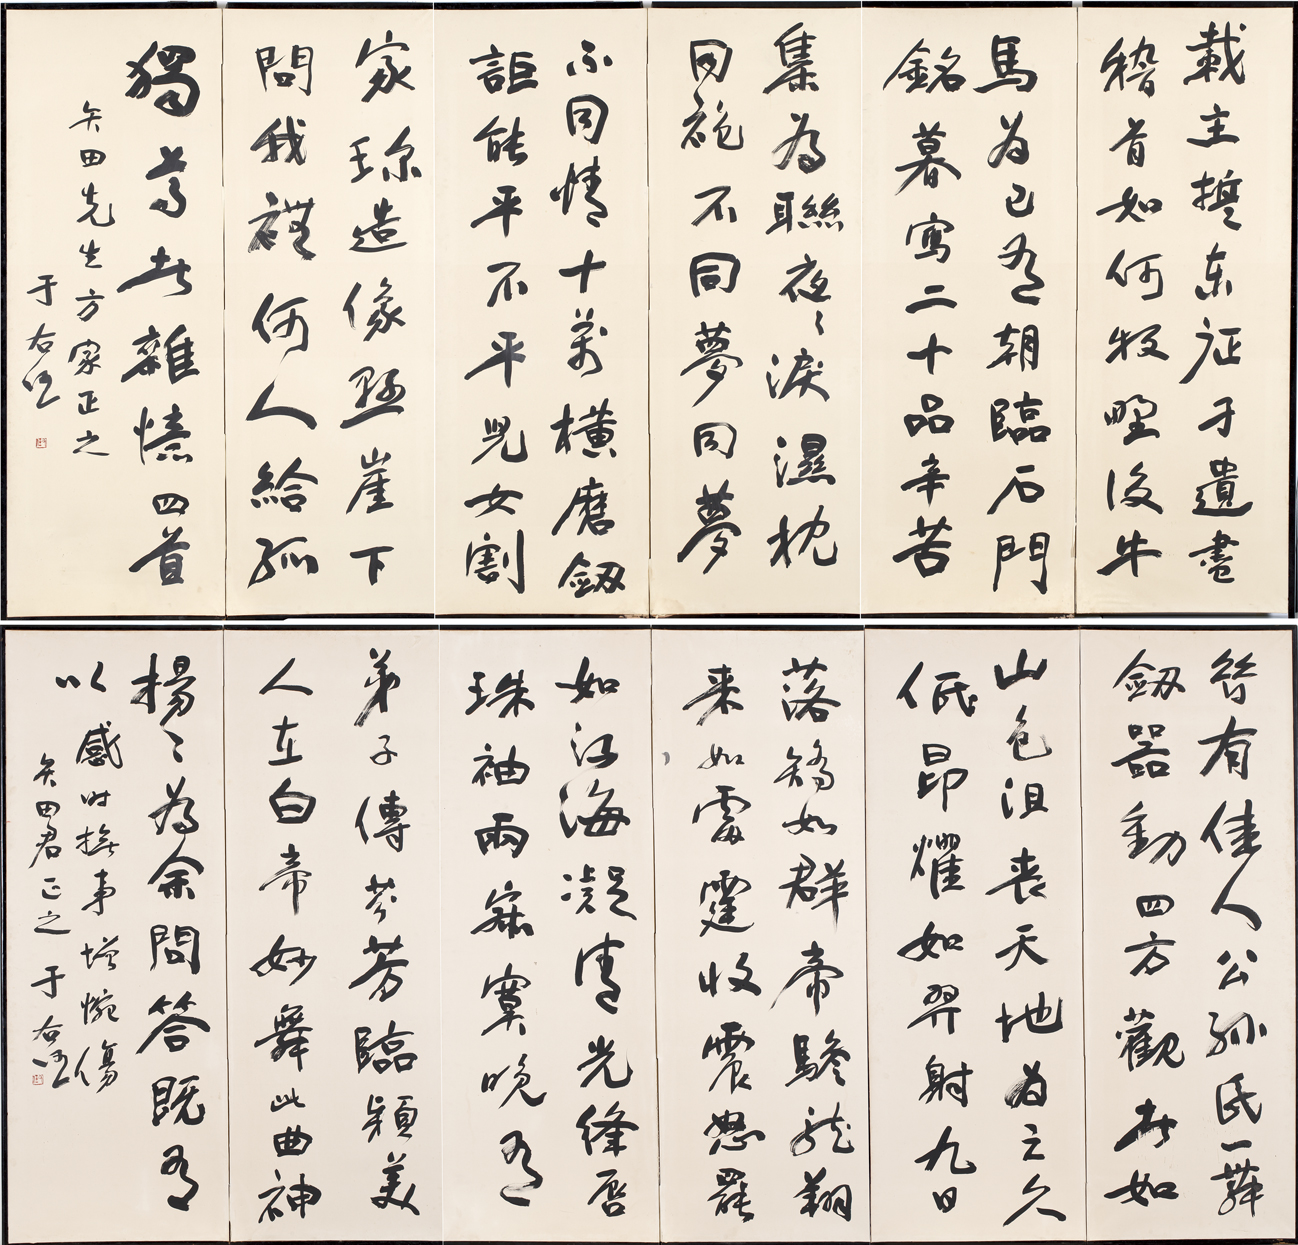 載主東征孑遺盡
稽首如何牧野後牛
馬為已有朝臨石門
銘暮寫二十品辛苦
集為聯夜〻淚濕枕
同袍不同夢同夢
不同情十萬橫磨劔
詎能平不平兒女割
家珍造像懸崖下
問我禮何人給孤
獨尊者雜憶四首
矢田先生方家正之
于右任
昔有佳人公孫氏一舞
劔器動四方觀者如
山色沮喪天地為之久
低昂㸌如羿射九日
落矯如群帝驂龍翔
来如雷霆收震怒罷
如江海凝清光絳唇
珠袖兩寂寞晚有
弟子傳芬芳臨潁美
人在白帝妙舞此曲神
揚〻為余問答既有
以感时撫事增惋傷
矢田君正之 于右任